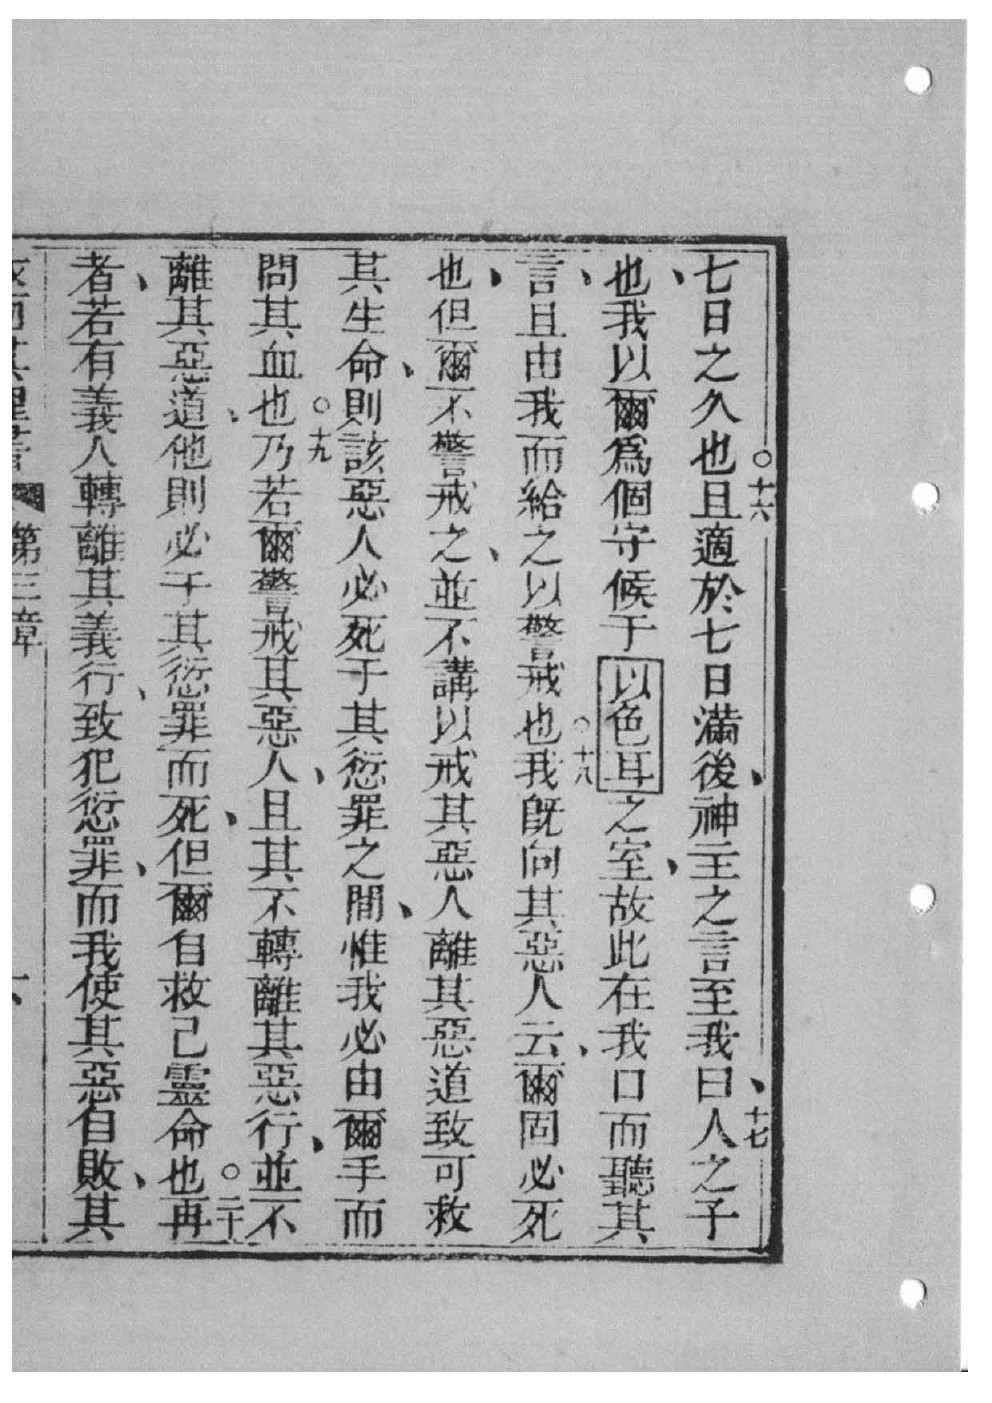 七日之久也○十六且適於七日滿後、神主之言至我曰、十七人之子
、也我以爾爲個守候于以色耳之室、故此在我口而聽其
、言且由我而給之以警戒也○十八我旣向其惡人云、爾固必死
、也但爾不警戒之、並不講以戒其惡人離其惡道致可救
其生命、則該惡人必死于其愆罪之間、惟我必由爾手而
問其血也○十九乃若爾警戒其惡人、且其不轉離其惡行、並不
離其惡道、他則必于其愆罪而死、但爾自救己靈命也○二十再
、者若有義人轉離其義行、致犯愆罪、而我使其惡自敗、其
第三章